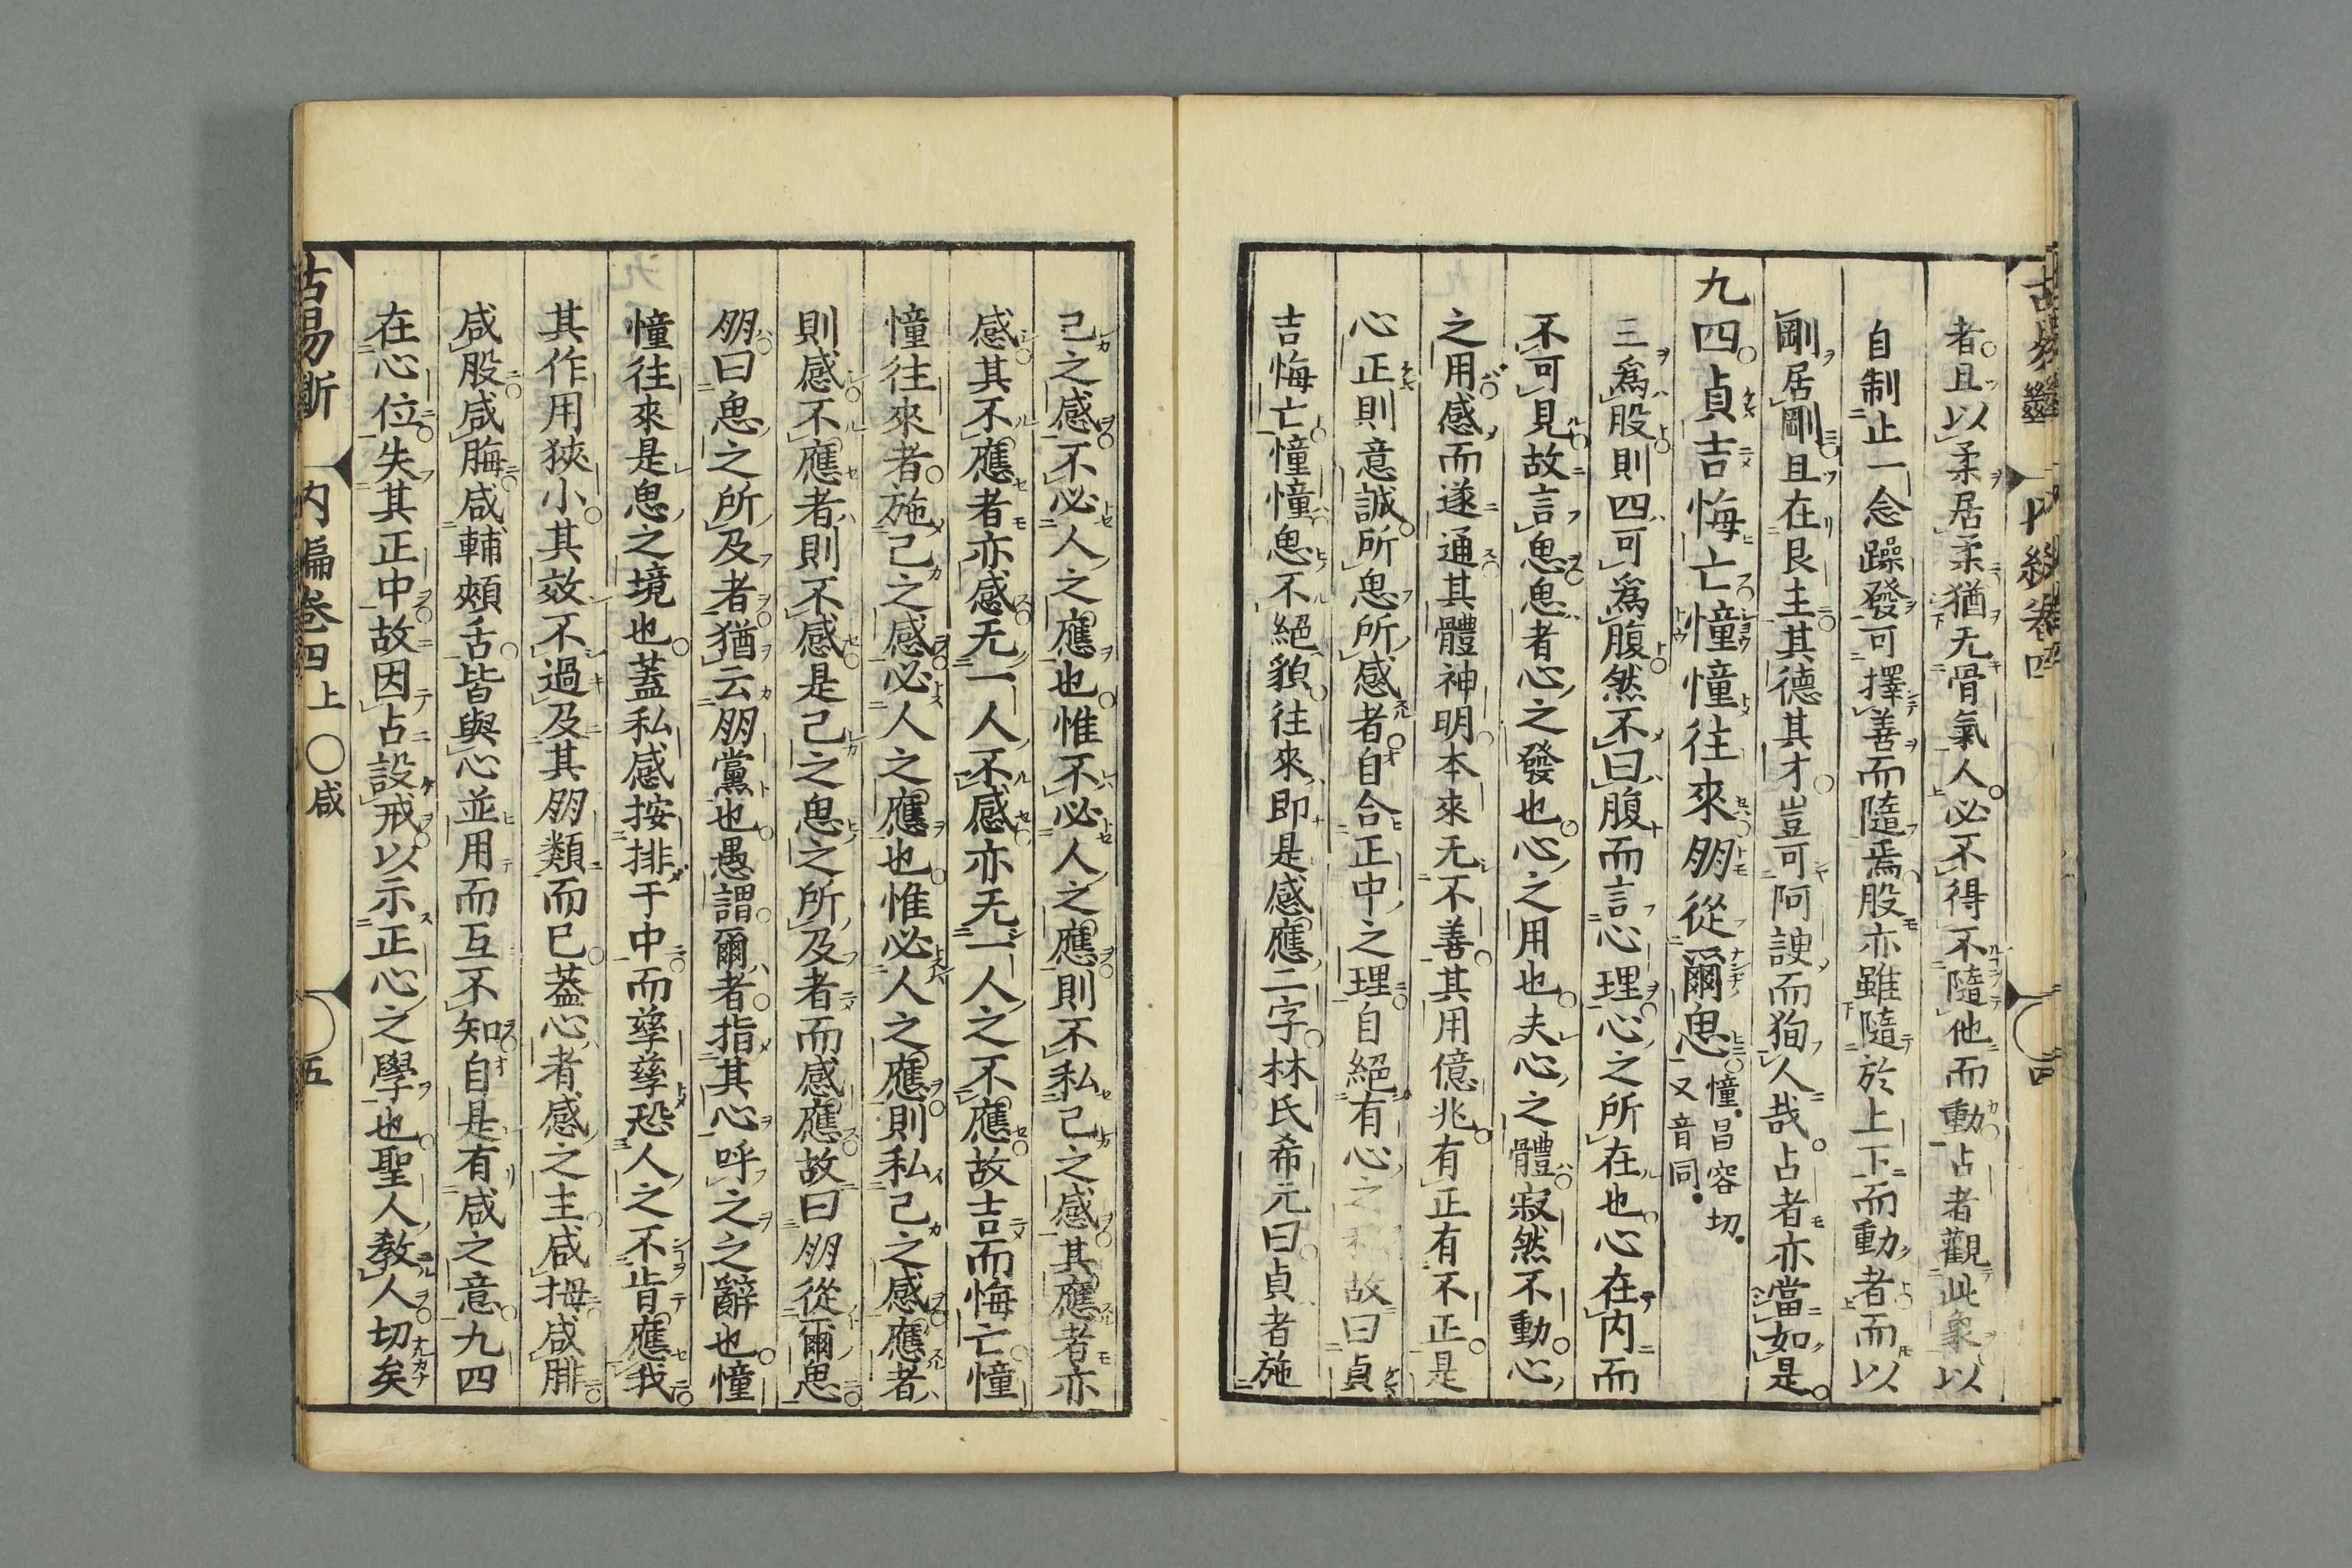 者且以柔居柔猶无骨氣人必不得不隨他而動占者觀此象以
自制止一念躁發可擇善而隨焉股亦雖隨於上下而動者而以
剛居剛且在艮主其德其才豈可阿諛而狥人哉占者亦當如是
九四貞吉悔亡憧憧往來朋從爾思
憧昌容切
又音同
三爲股則四可爲腹然不曰腹而言心理心之所在也心在内而
不可見故言思思者心之發也心之用也夫心之體寂然不動心
之用感而遂通其體神明本來无不善其用億兆有正有不正是
心正則意誠所思所感者自合正中之理自絕有心之 故曰貞
吉悔亡憧憧思不絕貌往來即是感應二字林氏希元曰貞者施
己之感不必人之應也惟不必人之應則不私己之感其應者亦
感其不應者亦感无一人不感亦无一人之不應故吉而悔亡憧
憧往來者施己之感必人之應也惟必人之應則私己之感應者
則感不應者則不感是己之思之所及者而感應故曰朋從爾思
朋曰思之所及者猶云朋黨也愚謂爾者指其心呼之之辭也憧
憧往來是思之境也蓋私感按排于中而孳孳恐人之不肯應我
其作用狹小其效不過及其朋類而已蓋心者感之主咸拇咸腓
咸股咸脢咸輔頰舌皆與心並用而互不知自是有咸之意九四
在心位失其正中故因占設戒以示正心之學也聖人教人切矣
古易斷 内編卷四上 ○咸 五